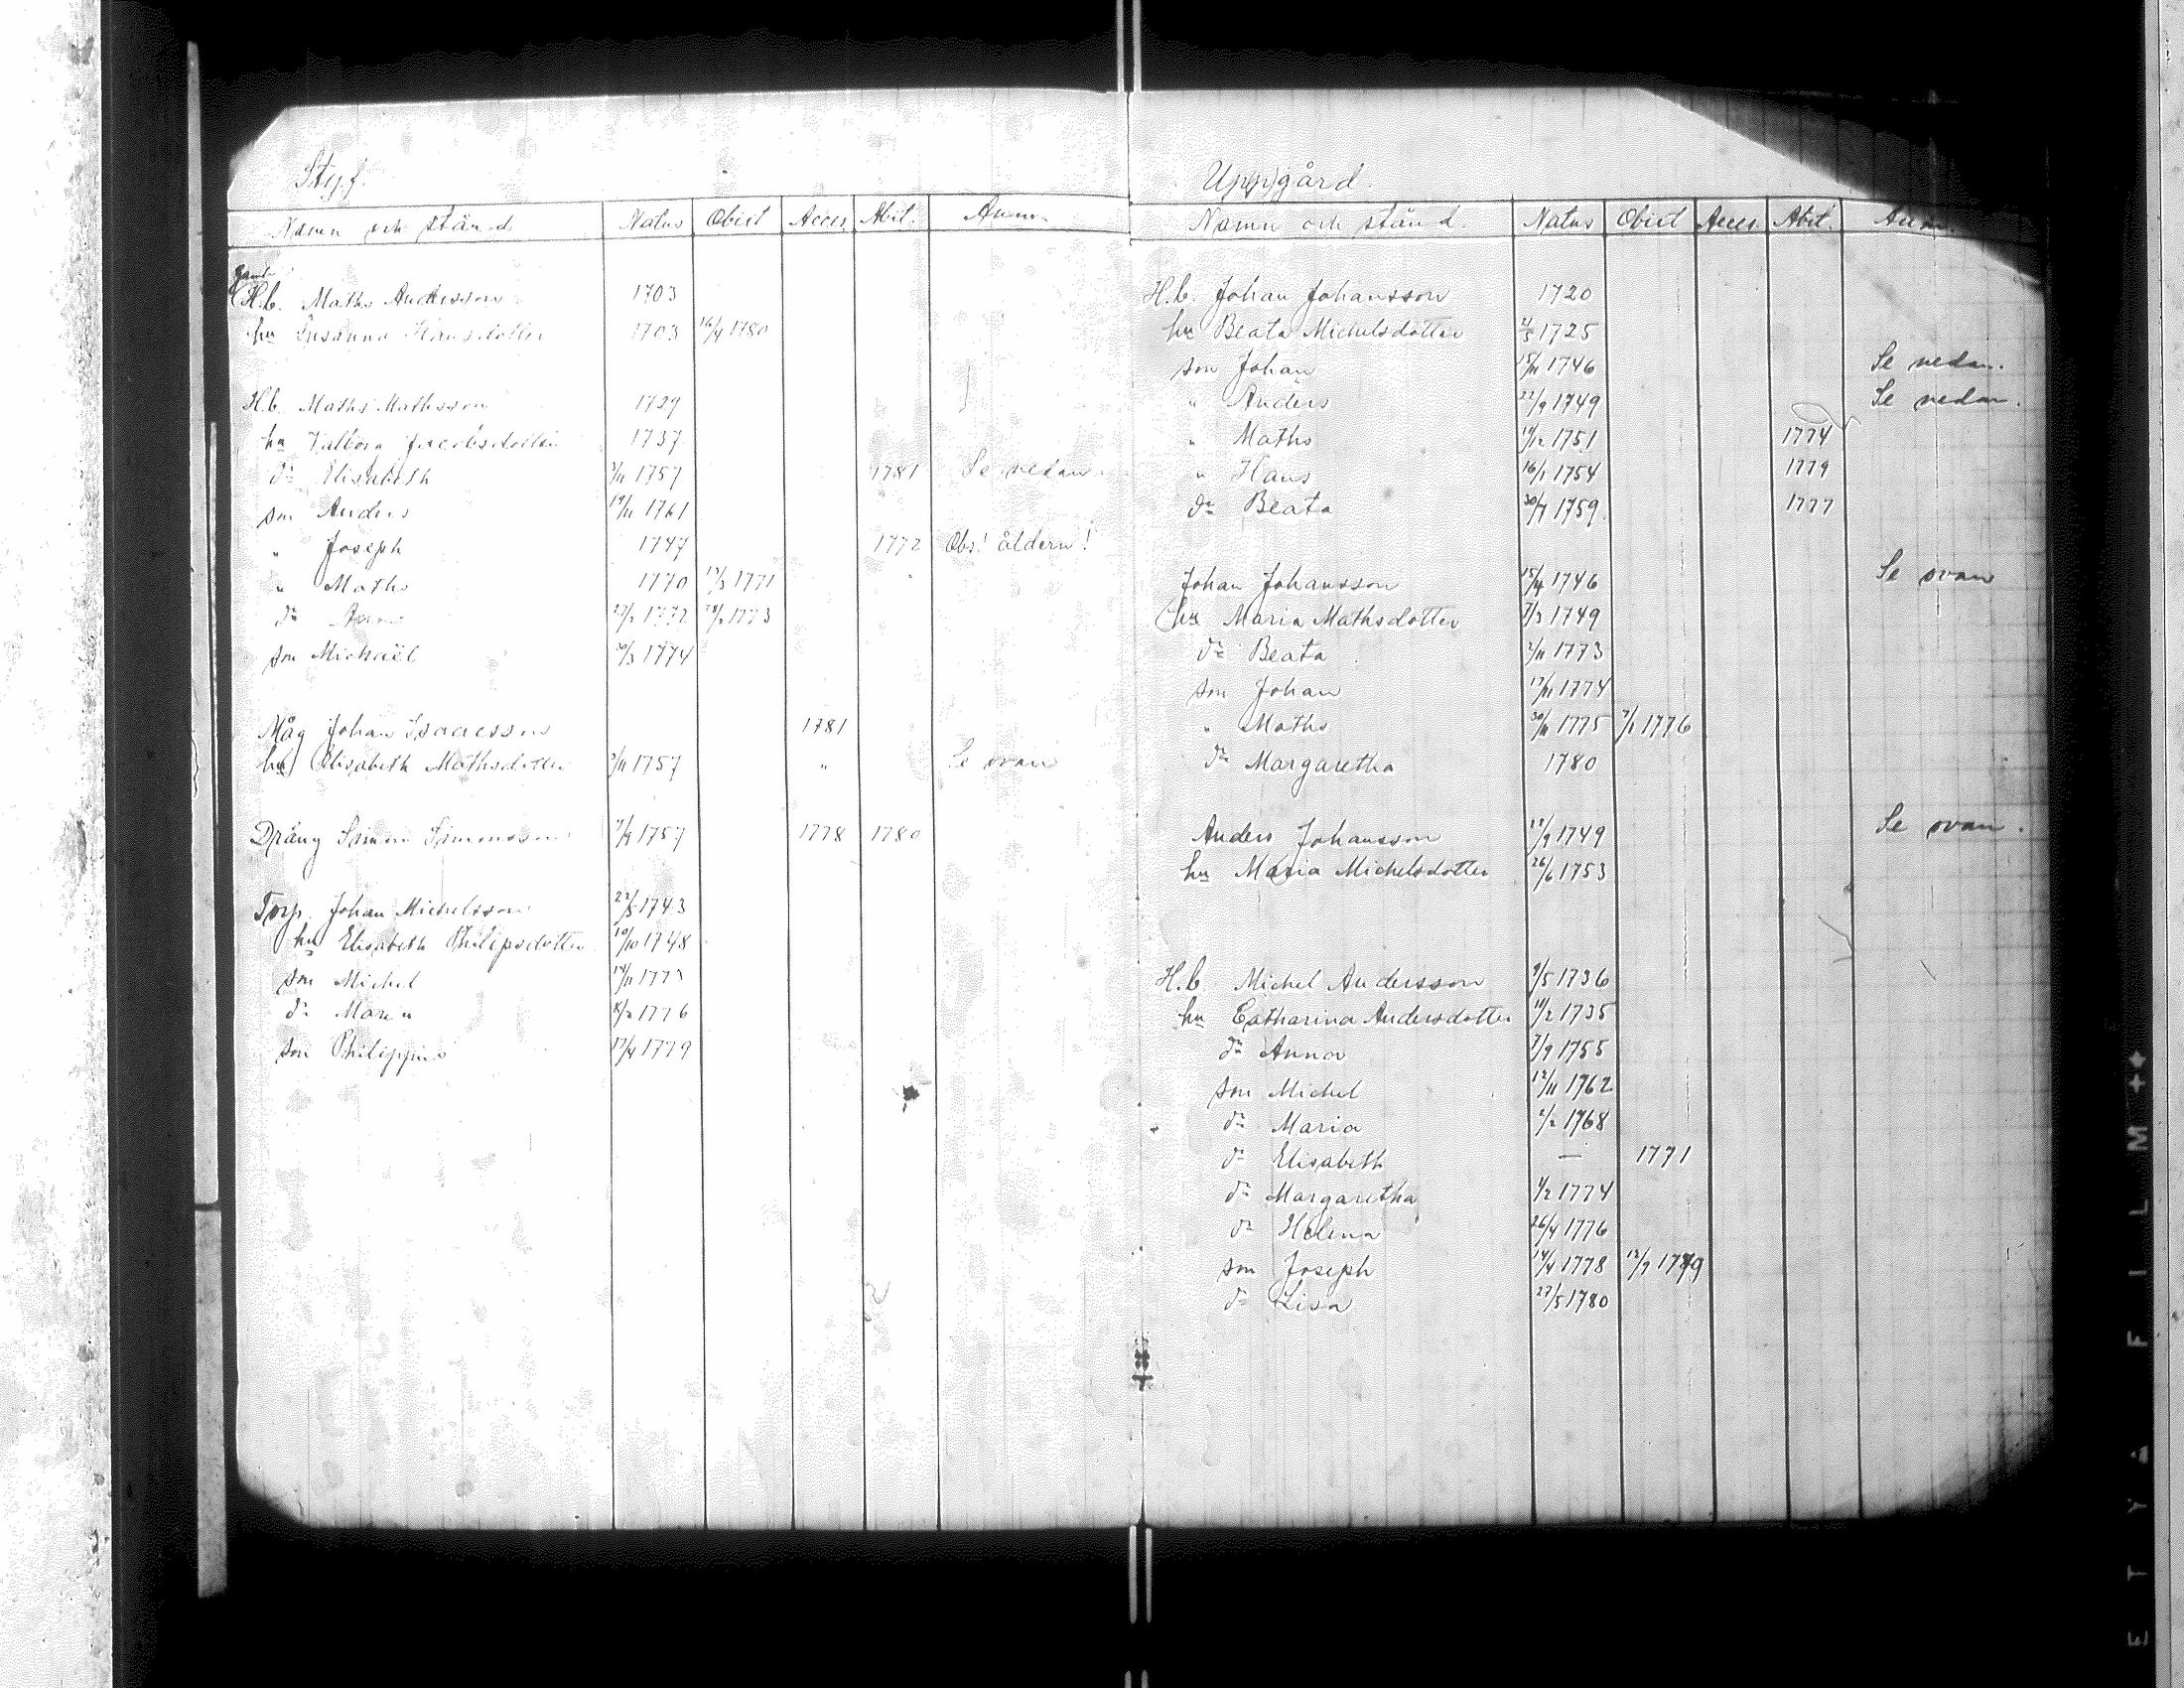 Styf.
Namn och stånd Natus Obiit Acces. Abit. Anm.
gamla
H.b. Maths Andersson 1703
hu Susanna Hansdotter 1703 16/4 1780
H.b. Maths Mathsson 1729
hu Valborg Jacobsdotter 1737
dr Elisabeth 3/11 1757 1781 Se nedan.
son Anders 19/11 1761
" Joseph 1747 1772 Obs! åldern!
" Maths 1770 13/3 1771
dr 1772 1773
son Michaël 30/3 1774
Måg Johan Isacsson 1781
hu Elisabeth Mathsdotter 3/11 1757 " Se ovan
Dräng Simon Simonsson 1757 1778 1780
Torp. Johan Michelsson 22/5 1743
hu Elisabeth Philipsdotter 10/10 1748
son Michel 14/11 1773
dr Maria 8/2 1776
son Philippus 17/4 1779
Uppgård.
Namn och stånd. Natus Obiit Acces. Abit. Anm.
H.b. Johan Johansson 1720
hu Beata Michelsdotter 1725
son Johan 15/11 1746 Se nedan.
" Anders 22/9 1749 Se nedan.
" Maths 19/12 1751 1774
" Hans 16/1 1754 1779
dr Beata 30/7 1759. 1777
Johan Johansson 1746 Se ovan
hu Maria Mathsdotter 7/3 1749
dr Beata 2/11 1773
son Johan 17/11 1774
" Maths 30/11 1775 7/1 1776
dr Margaretha 1780
Anders Johansson 1749 Se ovan.
hu Maria Michelsdotter 26/6 1753
H.b. Michel Andersson 9/5 1736
hu Catharina Andersdotter 11/2 1735
dr Anna 7/9 1755
son Michel 12/11 1762
dr Maria 2/2 1768
dr Elisabeth — 1771
dr Margaretha 1/2 1774
dr Helena 26/4 1776
son Joseph 14/4 1778 12/7 1779
dr Lisa 27/5 1780
ETYÄ FILM